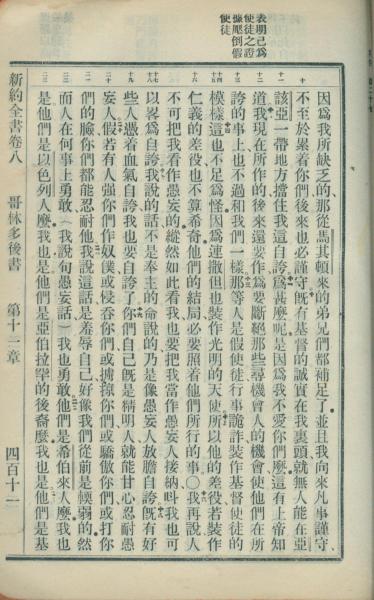 表明己爲
使徒之證
據厭倒假
使徒
因爲我所缺乏的那從馬其頓來的弟兄們都補足了並且我向來凡事謹守
不至於累着你們後來也必謹守旣有基督的誠實在我裏頭就無人能在亞
該亞一帶地方擋住我這自誇爲甚麽呢是因爲我不愛你們麽這有上帝知
道我現在所作的後來還要作爲要斷絕那些尋機會人的機會使他們在所
誇的事上也不過和我們一樣那等人是假使徒行事詭詐裝作基督使徒的
模樣這也不足爲怪因爲連撒但也裝作光明的天使所以他的差役若裝作
仁義的差役也不算希奇他們的結局必要照着他們所行的事〇我再說人
不可把我看作愚妄的縱然如此看我也要把我當作愚妄人接納呌我也可
以畧爲自誇我說的話不是奉主的命說的乃是像愚妄人放膽自誇旣有好
些人憑着血氣自誇我也要自誇了你們自己旣是精明人就能甘心忍耐愚
妄人假若有人强你們作奴僕或侵吞你們或擄掠你們或驕傲你們或打你
們的臉你們都能忍耐他我說這話是羞辱自己好像我們從前是輭弱的然
而人在何事上勇敢（我說句愚妄話）我也勇敢他們是希伯來人麽我也
是他們是以色列人麽我也是他們是亞伯拉罕的後裔麽我也是他們是基
新約全書卷八　哥林多後書　第十一章　四百十一